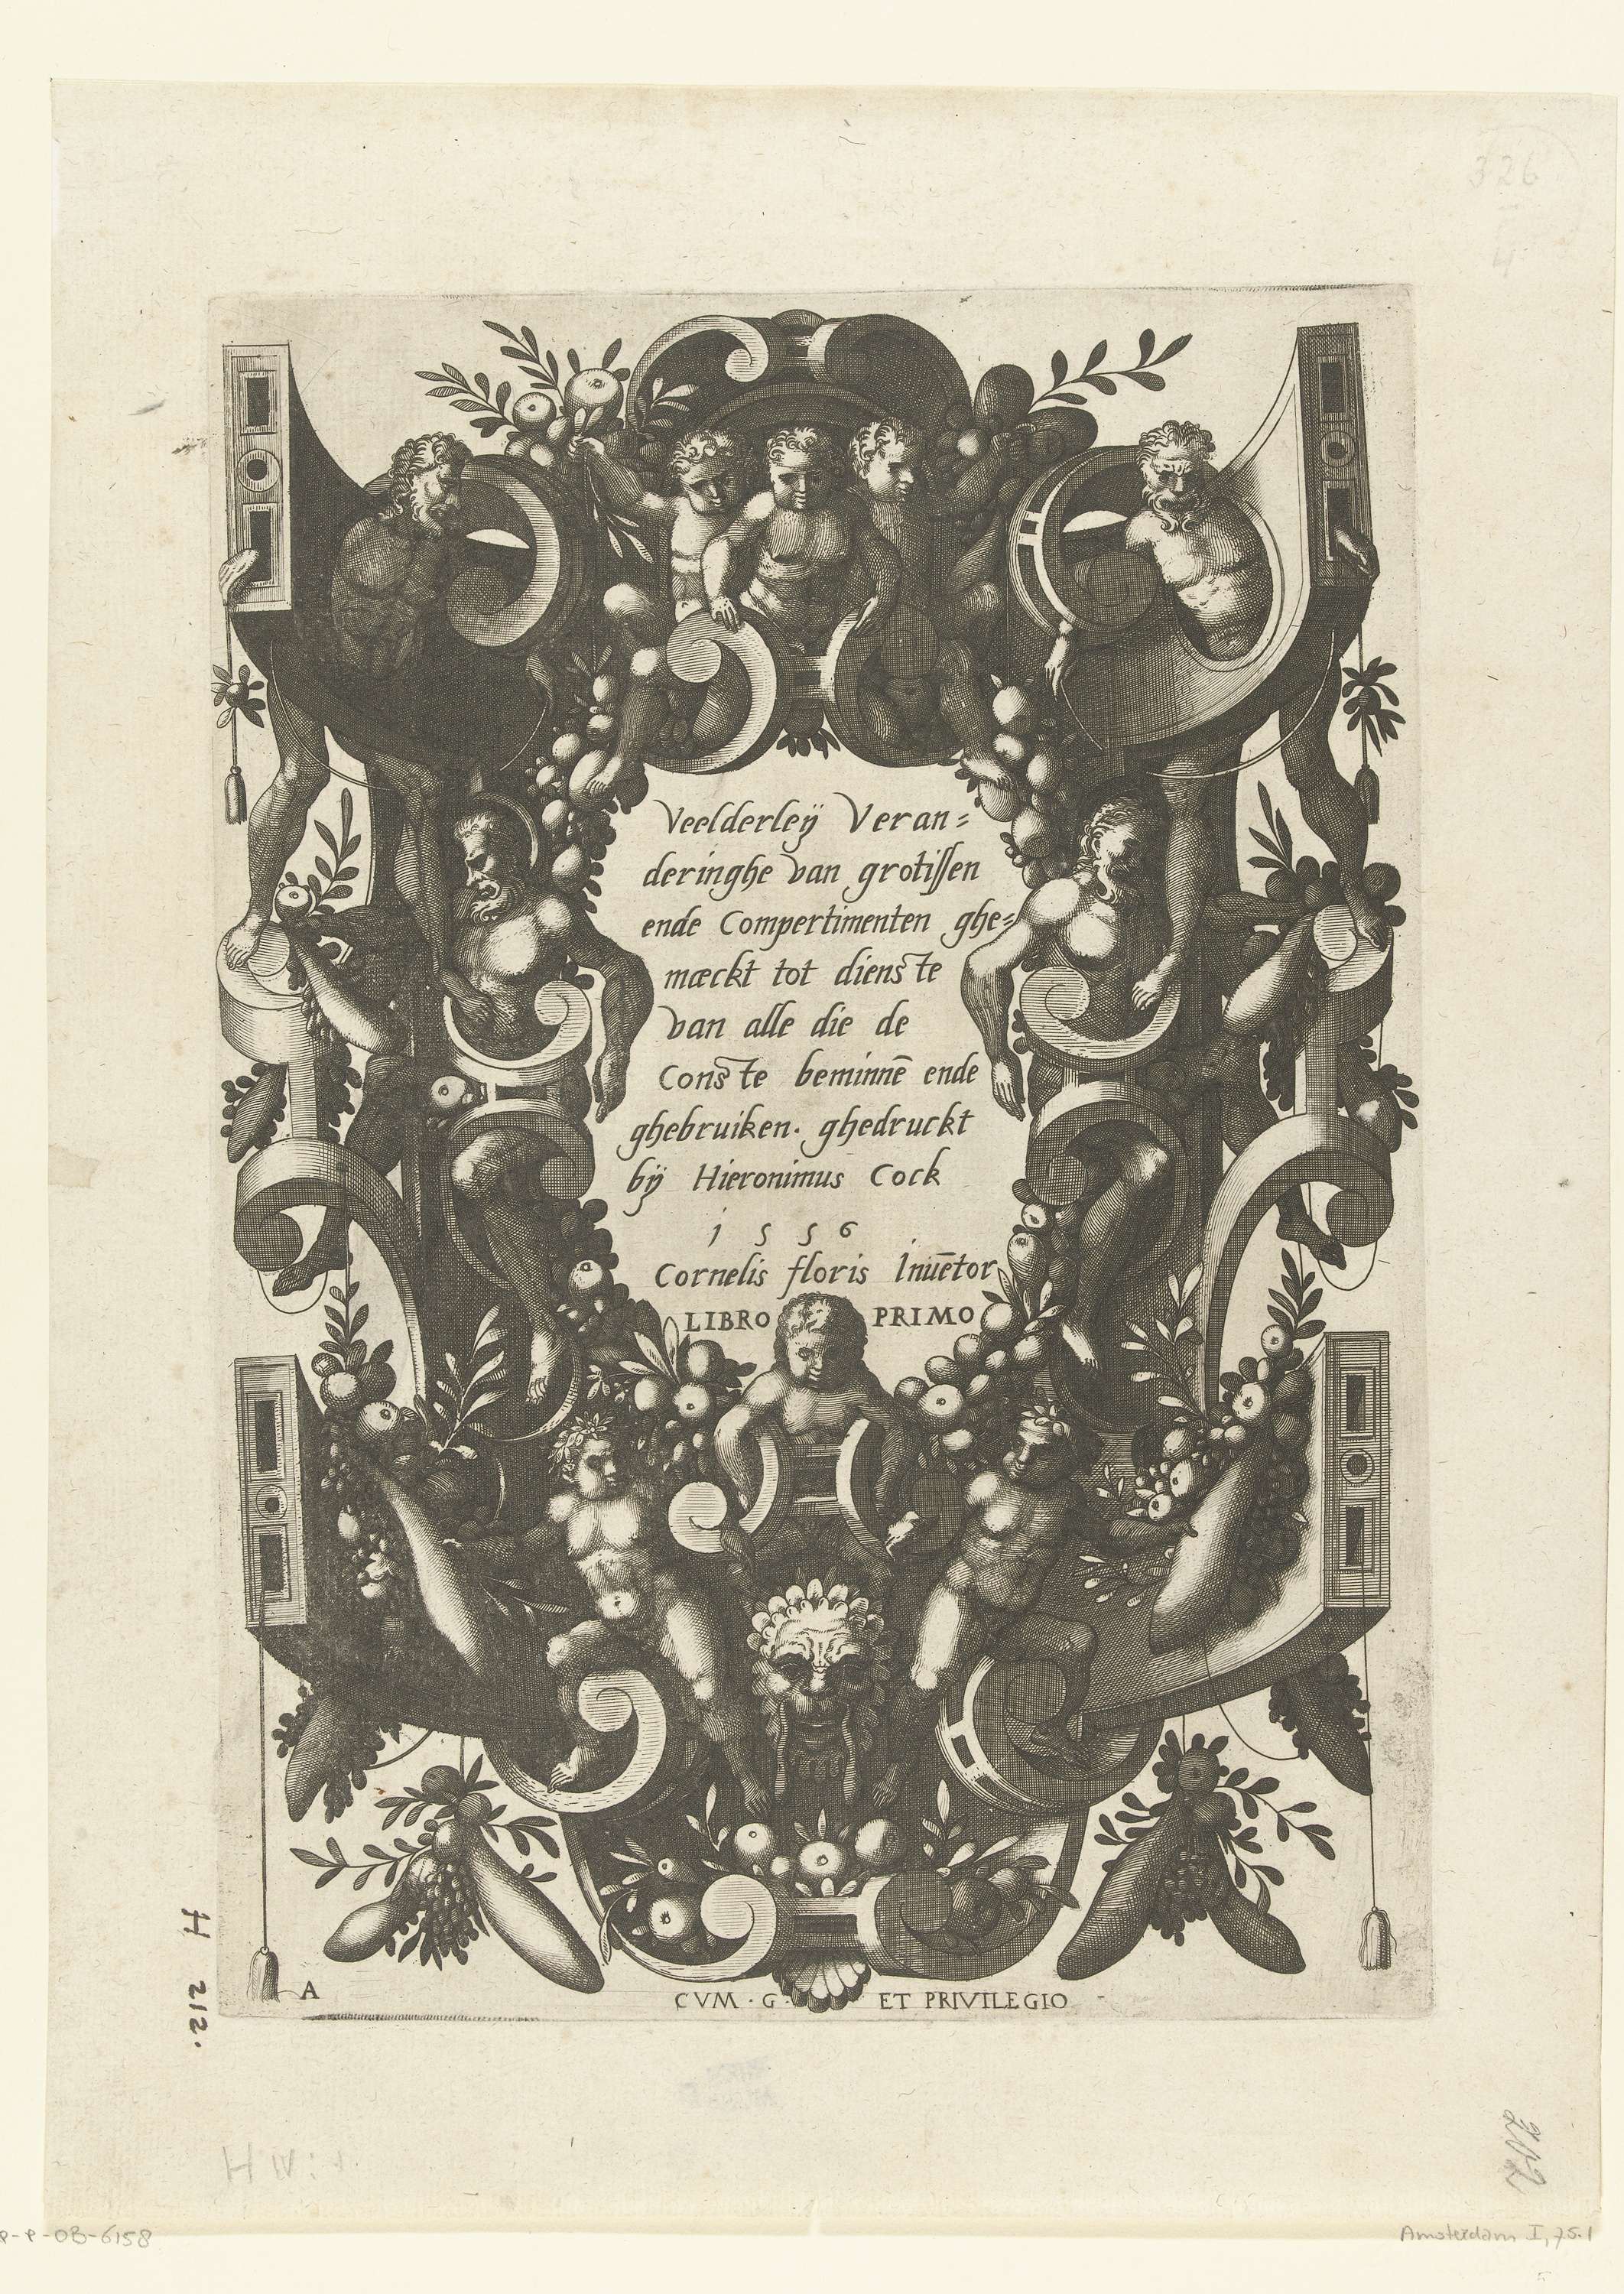 326
4
Veelderleÿ Veran=
deringhe van grotissen
ende Compertimenten ghe=
mæckt tot dienste
van alle die de
Conste beminnē ende
ghebruiken. ghedruckt
bÿ Hieronimus Cock
1556
Cornelis floris Inuētor
LIBRO PRIMO
A
CVM · G · ET PRIVILEGIO
H 212.
212
Amsterdam I, 75.1
P-P-OB-6158